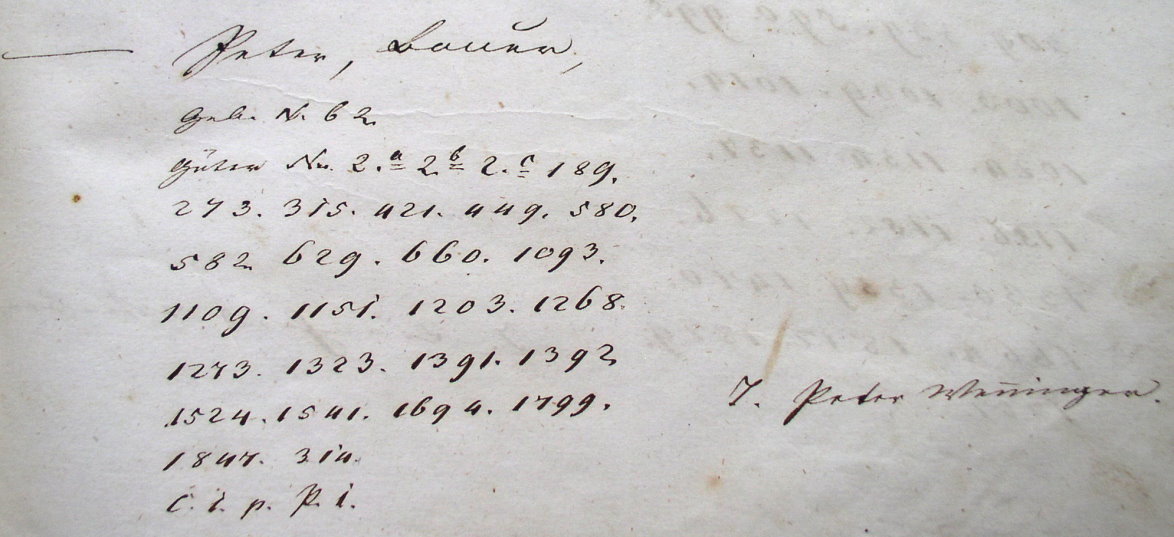 Peter, Bauer,
Geb. N. 62
Güter No. 2.a 2b 2.c 189.
273. 315. 421. 449. 580.
582 629. 660. 1093.
1109. 1151. 1203. 1268.
1273. 1323. 1391. 1392
1524. 1541. 1694. 1799.
1847. 314.
C. i. p. P. i.
7. Peter Weninger.